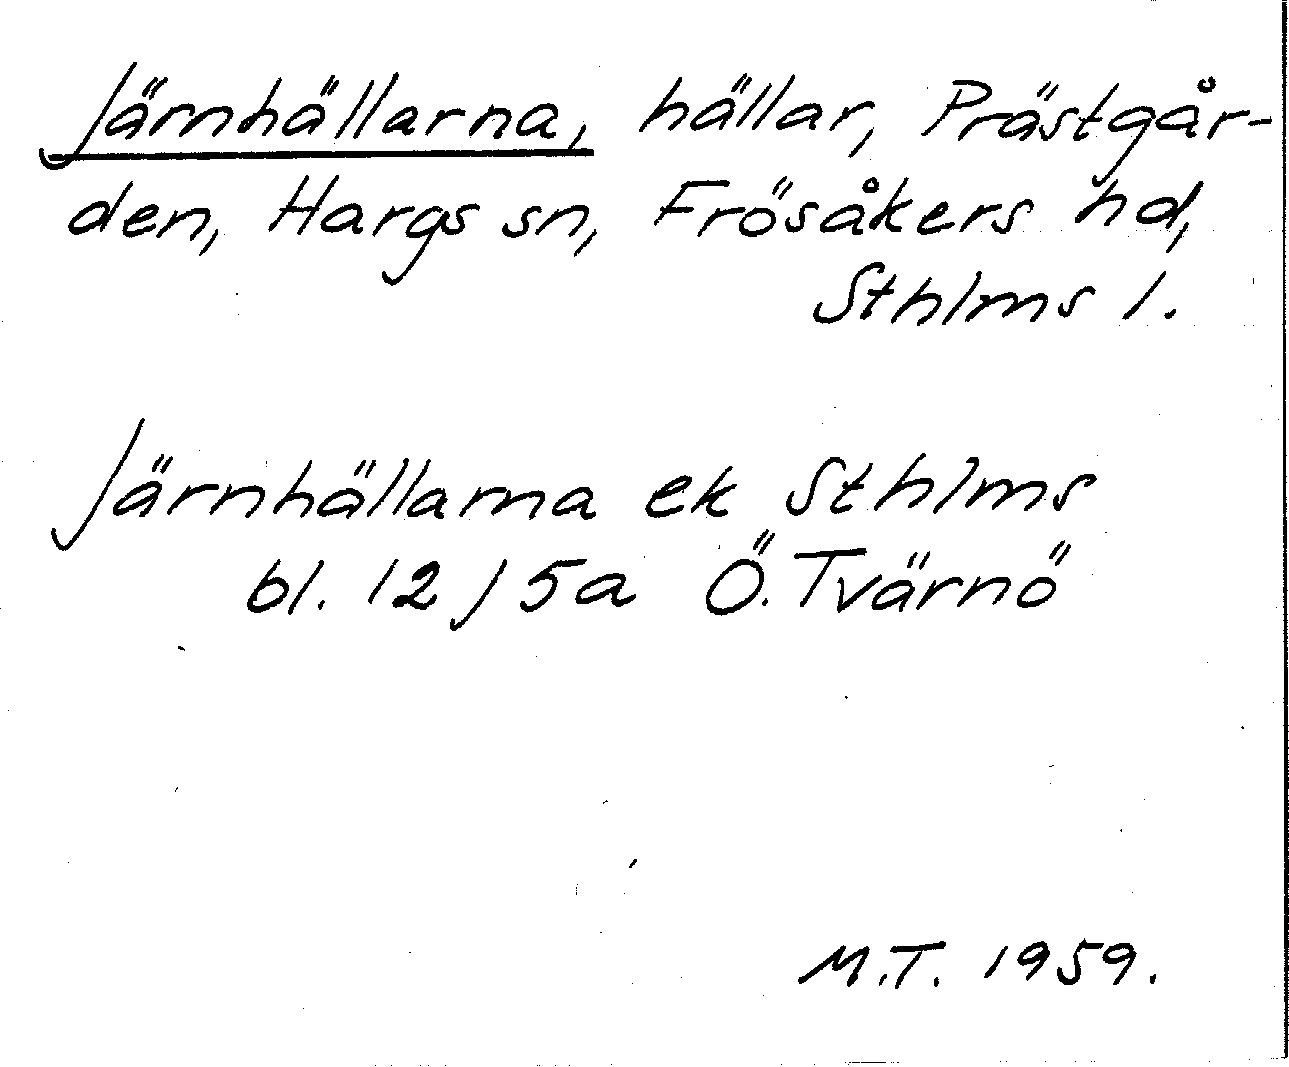 Järnhällarna, hällar, Prästgår-
den, Hargs sn, Frösåkers hd,
Sthlms l.
Järnhällarna ek Sthlms
bl. 12 J 5a Ö. Tvärnö
M.T. 1959.